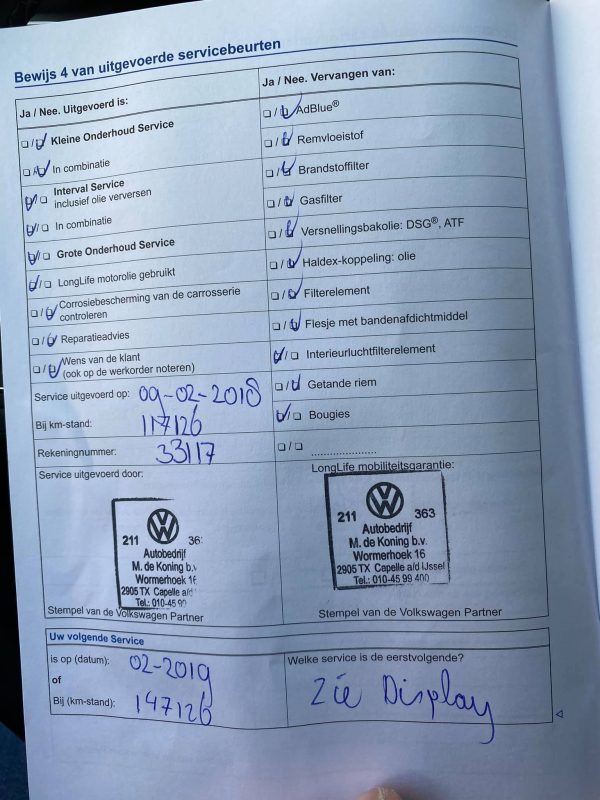 Bewijs 4 van uitgevoerde servicebeurten
Ja / Nee. Uitgevoerd is:
❏/❏ Kleine Onderhoud Service
❏/❏ In combinatie
❏/❏ Interval Service
inclusief olie verversen
❏/❏ In combinatie
❏/❏ Grote Onderhoud Service
❏/❏ LongLife motorolie gebruikt
❏/❏ Corrosiebescherming van de carrosserie
controleren
❏/❏ Reparatieadvies
❏/❏ Wens van de klant
(ook op de werkorder noteren)
Service uitgevoerd op: 09-02-2018
Bij km-stand: 117126
Rekeningnummer: 33117
Service uitgevoerd door:
211 36
Autobedrijf
M. de Koning b.v
Wormerhoek 16
2905 TX Capelle a/d
Tel.: 010-45 99
Stempel van de Volkswagen Partner
Ja / Nee. Vervangen van:
❏/❏ AdBlue®
❏/❏ Remvloeistof
❏/❏ Brandstoffilter
❏/❏ Gasfilter
❏/❏ Versnellingsbakolie: DSG®, ATF
❏/❏ Haldex-koppeling: olie
❏/❏ Filterelement
❏/❏ Flesje met bandenafdichtmiddel
❏/❏ Interieurluchtfilterelement
❏/❏ Getande riem
❏/❏ Bougies
❏/❏ .....................
LongLife mobiliteitsgarantie:
211 363
Autobedrijf
M. de Koning b.v.
Wormerhoek 16
2905 TX Capelle a/d IJssel
Tel.: 010-45 99 400
Stempel van de Volkswagen Partner
Uw volgende Service
is op (datum): 02-2019
of
Bij (km-stand): 147126
Welke service is de eerstvolgende?
Zie Display